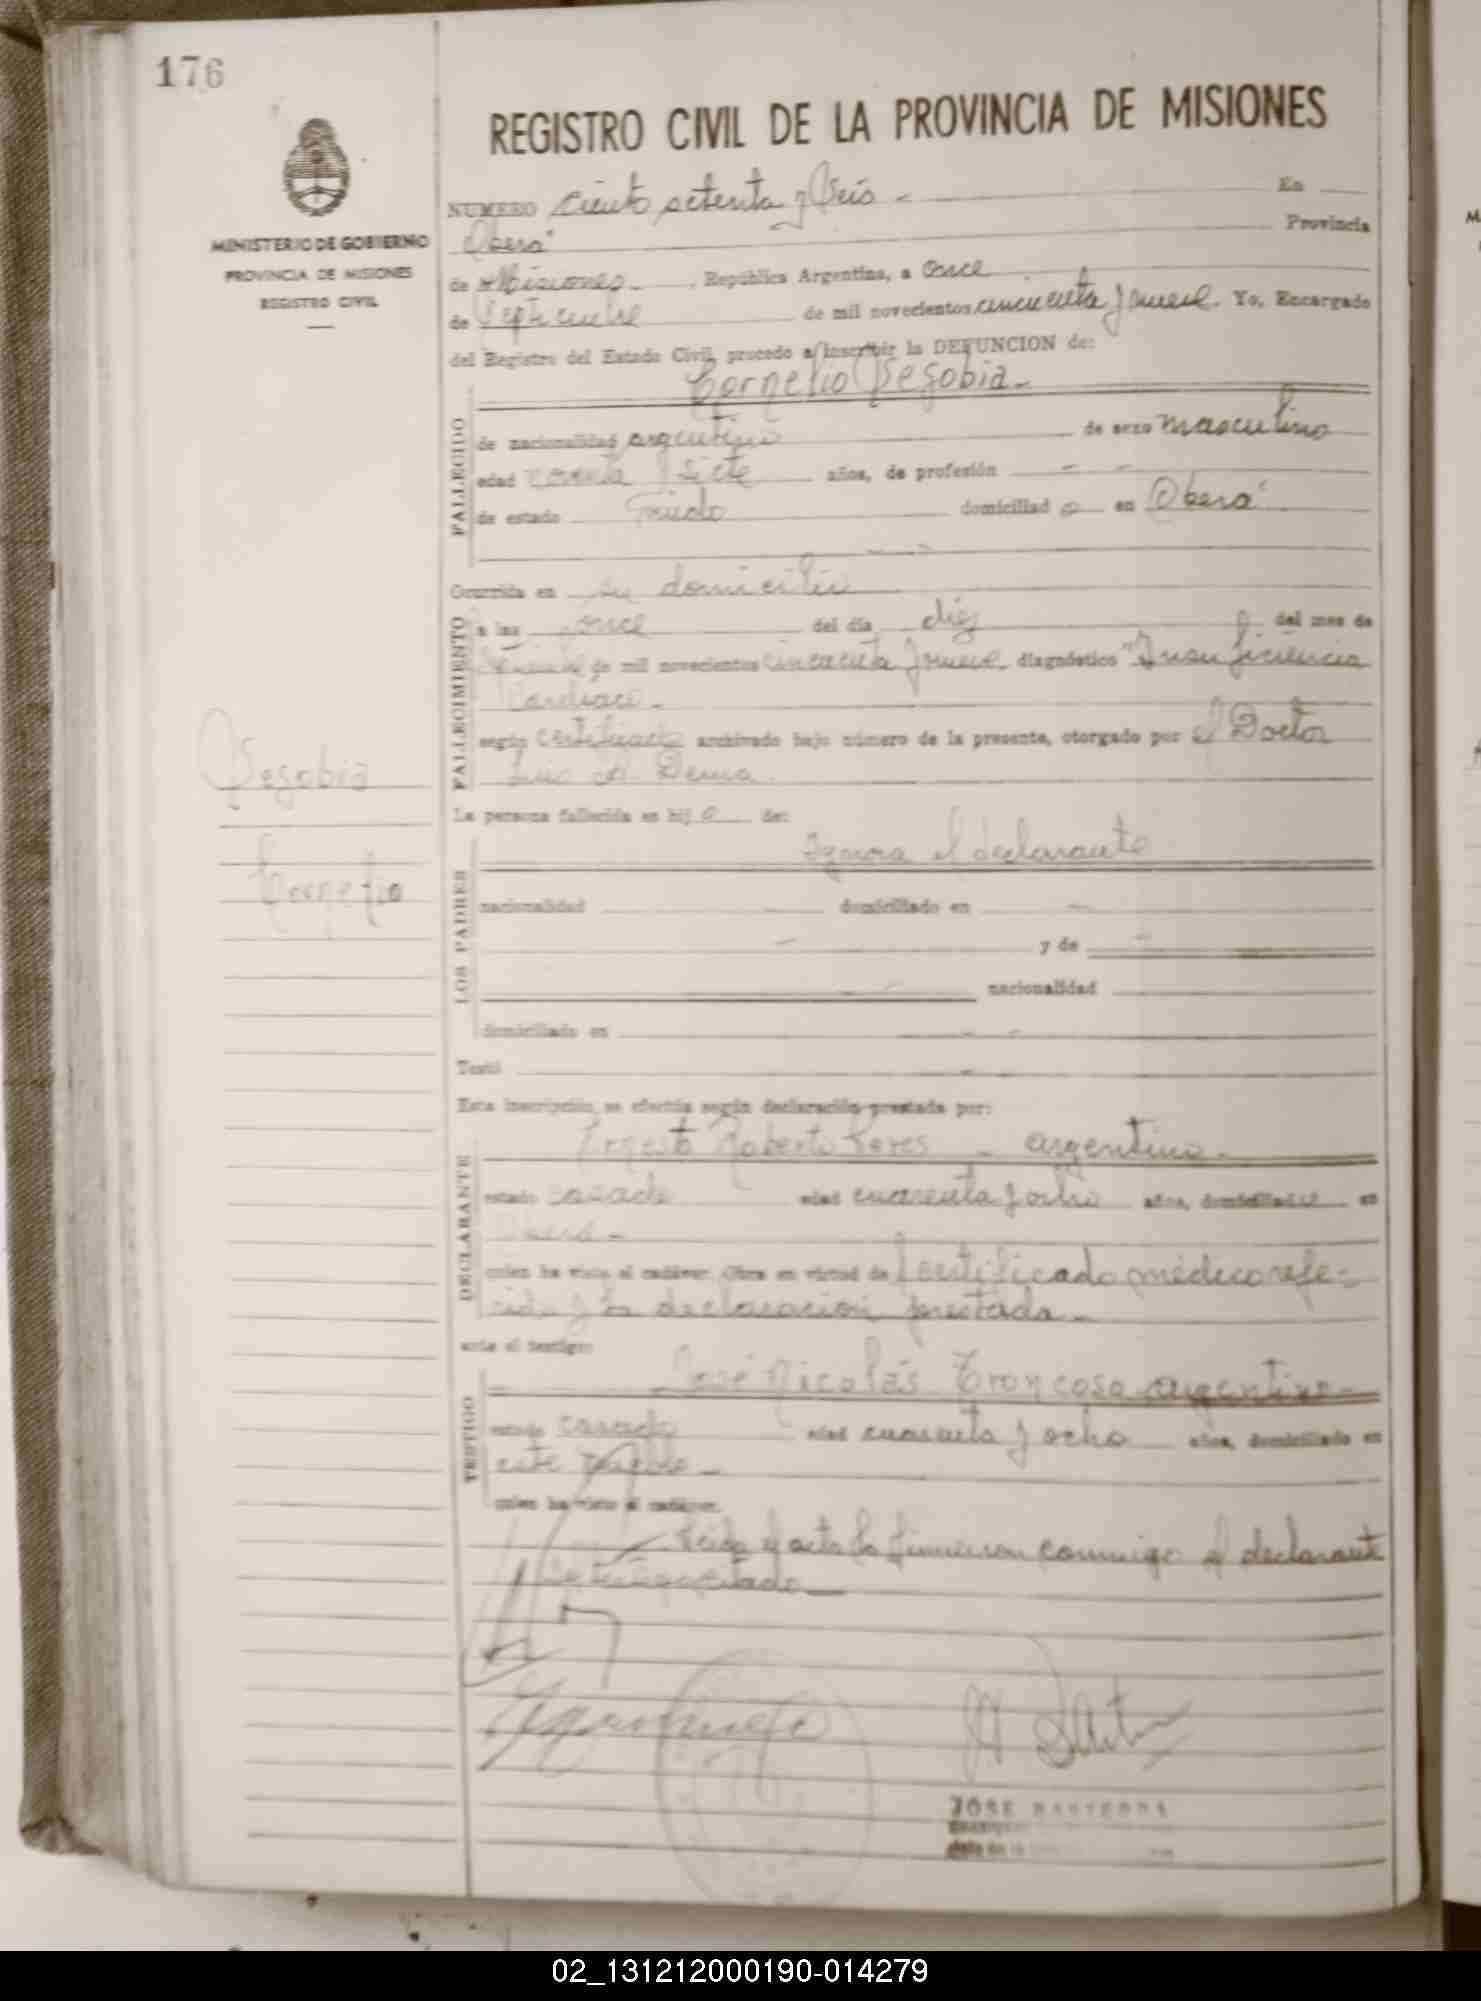 176
REGISTRO CIVIL DE LA PROVINCIA DE MISIONES
MINISTERIO DE GOBIERNO
PROVINCIA DE MISIONES
REGISTRO CIVIL
NUMERO ciento setenta y Seis - En
Oberá Provincia
de Misiones, República Argentina, a once
de Septiembre de mil novecientos cincuenta y nueve. Yo, Encargado
del Registro del Estado Civil, procedo a inscribir la DEFUNCION de:
Cornelio Segobia -
FALLECIDO
de nacionalidad argentino de sexo masculino
edad noventa y siete años, de profesión - -
de estado Viudo domiciliad o en Oberá
Ocurrida en su domicilio
FALLECIMIENTO
a las once del día diez del mes de
de mil novecientos cincuenta y nueve diagnóstico "Insuficiencia
Cardiaca -
según certificado archivado bajo número de la presente, otorgado por el Doctor
Luis A.
Segobia
Cornelio
La persona fallecida es hij o de:
LOS PADRES
Ignora el declarante
nacionalidad - domiciliado en -
- y de -
- nacionalidad
domiciliado en - -
Testó -
Esta inscripción, se efectúa según declaración prestada por:
DECLARANTE
Ernesto Roberto Peres - argentino -
estado casado edad cuarenta y ocho años, domiciliado en
Oberá -
quien ha visto el cadáver. Obra en virtud de certificado médico refe-
rido y la declaración prestada -
ante el testigo:
TESTIGO
José Nicolás Troncoso argentino -
estado casado edad cuarenta y ocho años, domiciliado en
este pueblo -
quien ha visto el cadáver.
Leida el acta la firmaron conmigo el declarante
JOSE
02_131212000190-014279